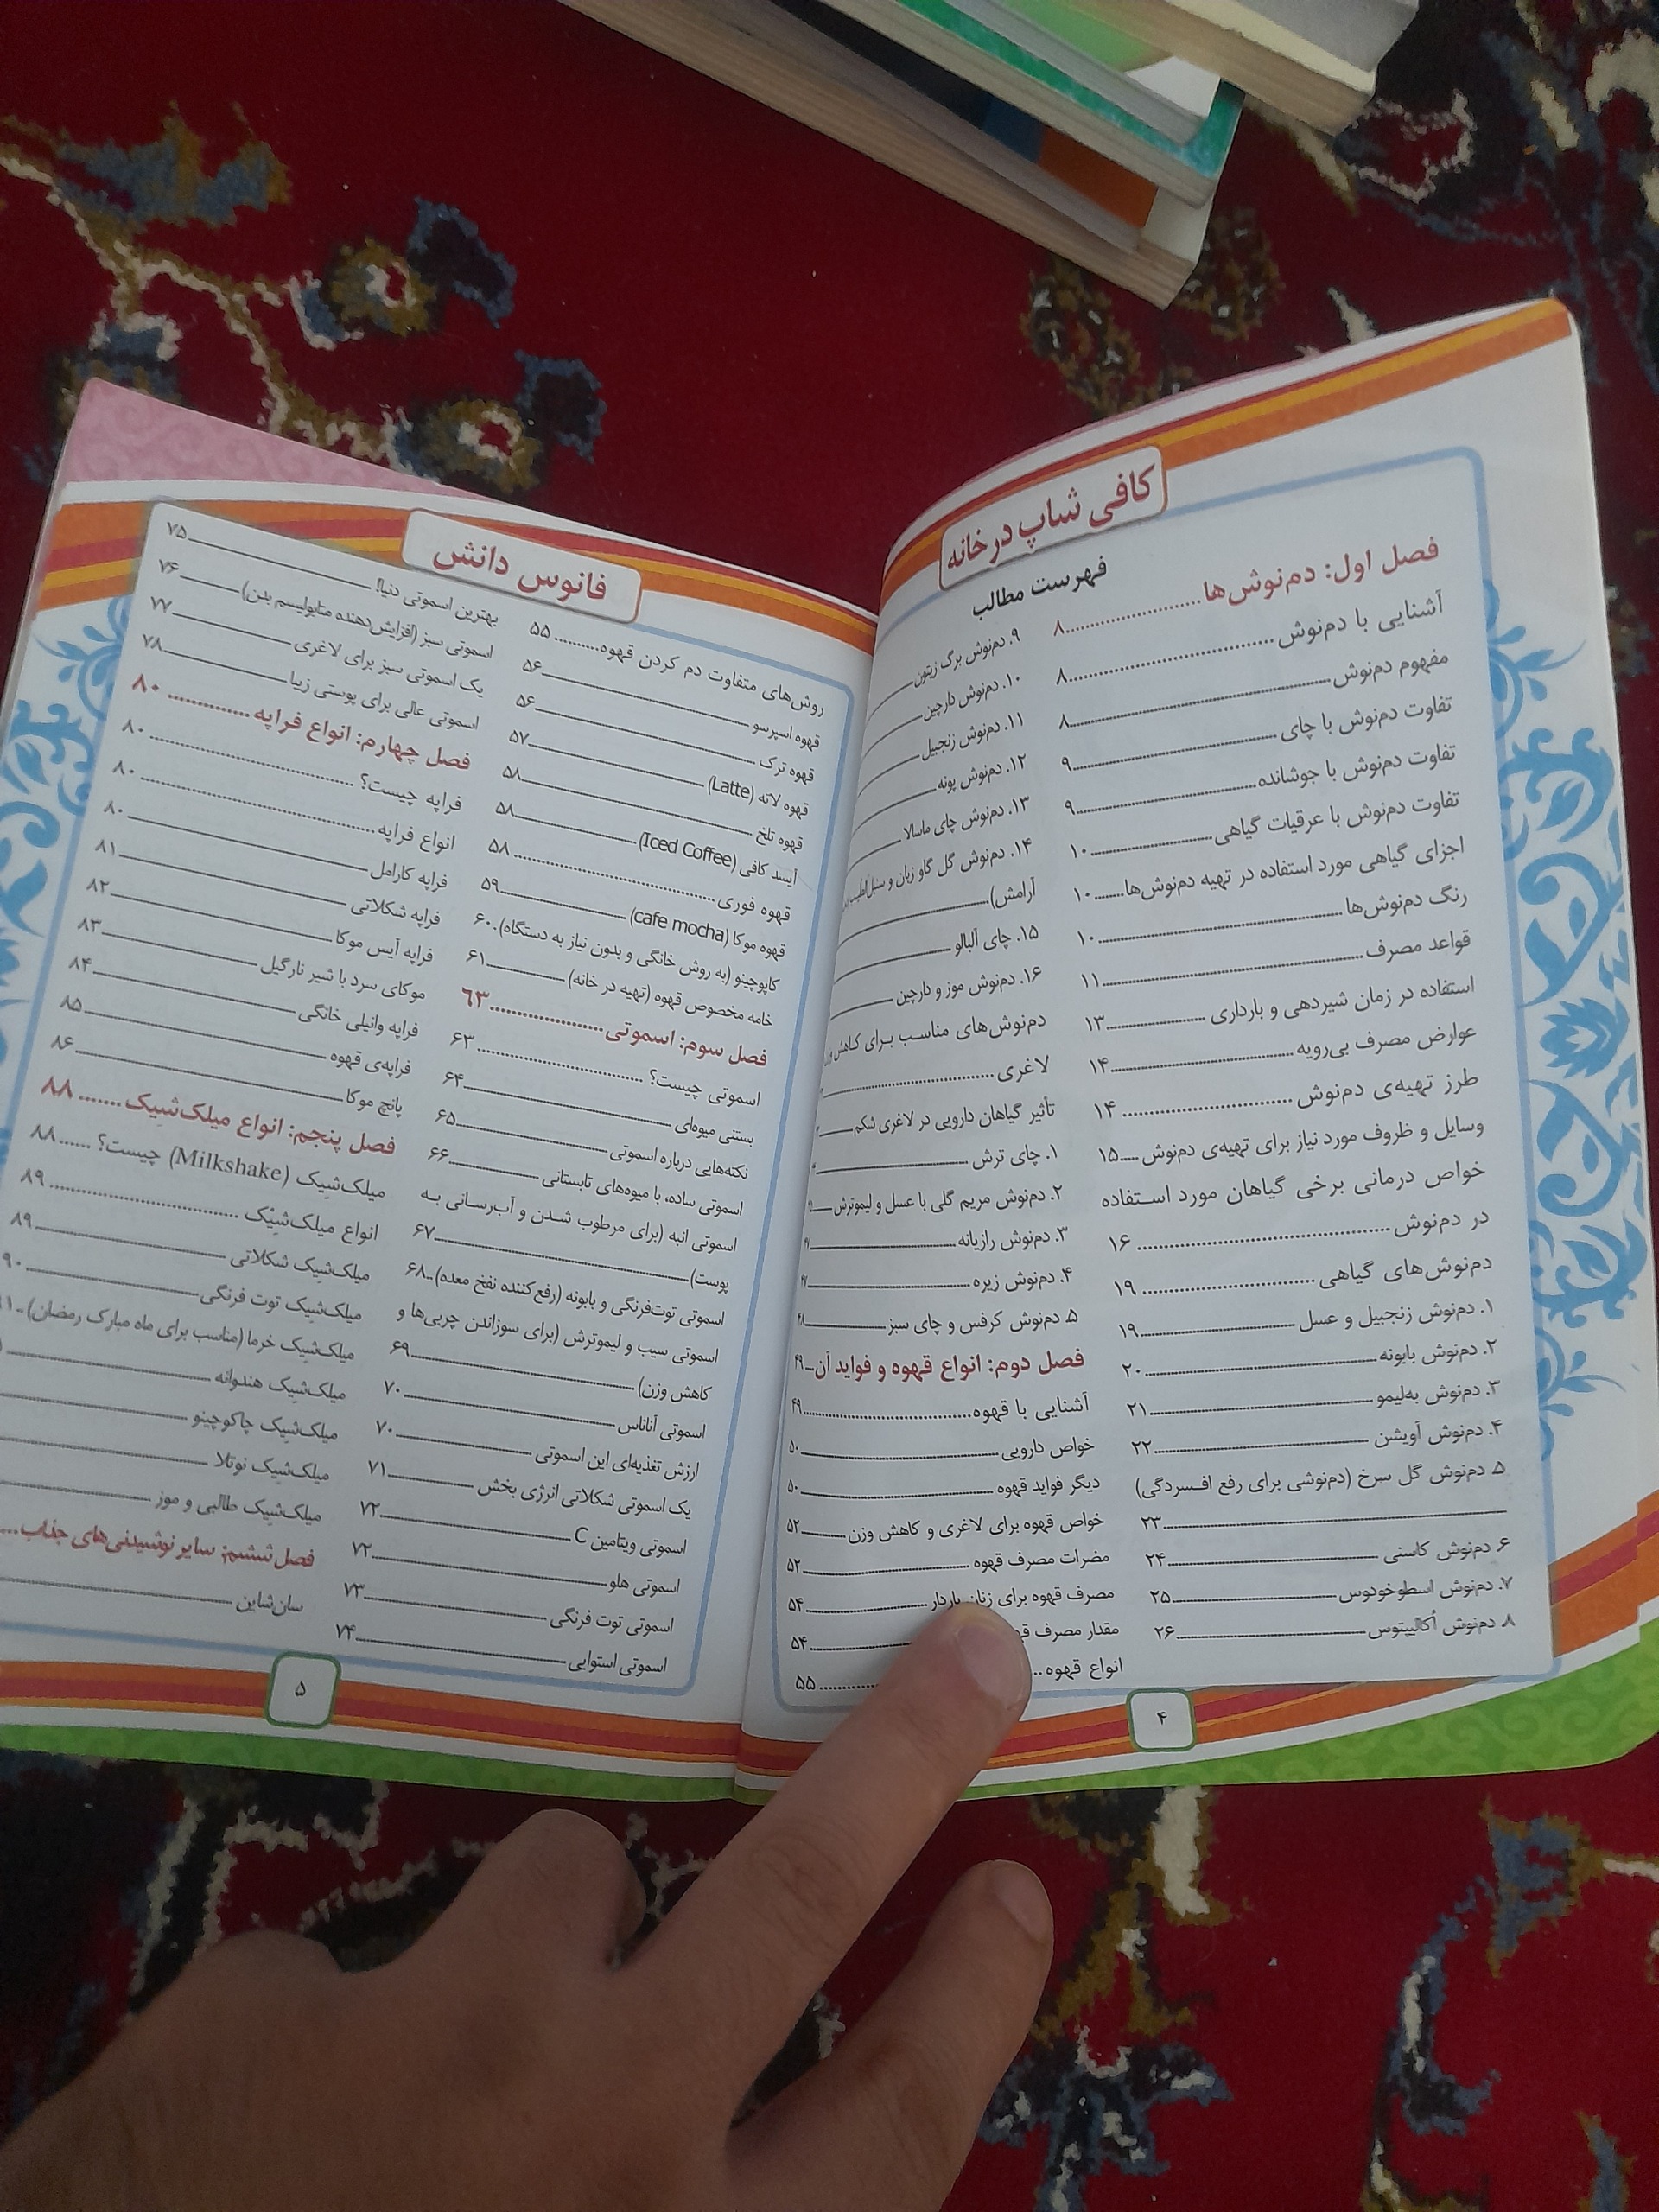 کافی شاپ در خانه
فهرست مطالب
فصل اول: دم‌نوش‌ها ۸
آشنایی با دم‌نوش ۸
مفهوم دم‌نوش ۸
تفاوت دم‌نوش با چای ۹
تفاوت دم‌نوش با جوشانده ۹
تفاوت دم‌نوش با عرقیات گیاهی ۱۰
اجزای گیاهی مورد استفاده در تهیه دم‌نوش‌ها ۱۰
رنگ دم‌نوش‌ها ۱۰
قواعد مصرف ۱۱
استفاده در زمان شیردهی و بارداری ۱۳
عوارض مصرف بی‌رویه ۱۴
طرز تهیه‌ی دم‌نوش ۱۴
وسایل و ظروف مورد نیاز برای تهیه‌ی دم‌نوش ۱۵
خواص درمانی برخی گیاهان مورد استفاده
در دم‌نوش ۱۶
دم‌نوش‌های گیاهی ۱۹
۱. دم‌نوش زنجبیل و عسل ۱۹
۲. دم‌نوش بابونه ۲۰
۳. دم‌نوش به‌لیمو ۲۱
۴. دم‌نوش آویشن ۲۲
۵. دم‌نوش گل سرخ (دم‌نوشی برای رفع افسردگی)
۲۳
۶. دم‌نوش کاسنی ۲۴
۷. دم‌نوش اسطوخودوس ۲۵
۸. دم‌نوش اکالیپتوس ۲۶
۹. دم‌نوش برگ زیتون
۱۰. دم‌نوش دارچین
۱۱. دم‌نوش زنجبیل
۱۲. دم‌نوش پونه
۱۳. دم‌نوش چای ماسالا
۱۴. دم‌نوش گل گاو زبان و سنبل‌الطیب
آرامش)
۱۵. چای آلبالو
۱۶. دم‌نوش موز و دارچین
دم‌نوش‌های مناسب برای کاهش
لاغری
تأثیر گیاهان دارویی در لاغری شکم
۱. چای ترش
۲. دم‌نوش مریم گلی با عسل و لیموترش
۳. دم‌نوش رازیانه
۴. دم‌نوش زیره
۵. دم‌نوش کرفس و چای سبز
فصل دوم: انواع قهوه و فواید آن ۴۹
آشنایی با قهوه ۴۹
خواص دارویی ۵۰
دیگر فواید قهوه ۵۰
خواص قهوه برای لاغری و کاهش وزن ۵۲
مضرات مصرف قهوه ۵۲
مصرف قهوه برای زنان باردار ۵۴
مقدار مصرف ۵۴
انواع قهوه ۵۵
۴
فانوس دانش
روش‌های متفاوت دم کردن قهوه ۵۵
قهوه اسپرسو ۵۶
قهوه ترک ۵۶
قهوه لاته (Latte) ۵۷
قهوه تلخ ۵۸
آیسد کافی (Iced Coffee) ۵۸
قهوه فوری ۵۸
قهوه موکا (cafe mocha) ۵۹
کاپوچینو (به روش خانگی و بدون نیاز به دستگاه) ۶۰
خامه مخصوص قهوه (تهیه در خانه) ۶۱
فصل سوم: اسموتی ۶۳
اسموتی چیست؟ ۶۳
بستنی میوه‌ای ۶۴
نکته‌هایی درباره اسموتی ۶۵
اسموتی ساده، با میوه‌های تابستانی ۶۶
اسموتی انبه (برای مرطوب شدن و آب‌رسانی به
پوست) ۶۷
اسموتی توت‌فرنگی و بابونه (رفع‌کننده نفخ معده) ۶۸
اسموتی سیب و لیموترش (برای سوزاندن چربی‌ها و
کاهش وزن) ۶۹
اسموتی آناناس ۷۰
ارزش تغذیه‌ای این اسموتی ۷۰
یک اسموتی شکلاتی انرژی بخش ۷۱
اسموتی ویتامین C ۷۲
اسموتی هلو ۷۲
اسموتی توت فرنگی ۷۳
اسموتی استوایی ۷۴
بهترین اسموتی دنیا! ۷۵
اسموتی سبز (افزایش‌دهنده متابولیسم بدن) ۷۶
یک اسموتی سبز برای لاغری ۷۷
اسموتی عالی برای پوستی زیبا ۷۸
فصل چهارم: انواع فراپه ۸۰
فراپه چیست؟ ۸۰
انواع فراپه ۸۰
فراپه کارامل ۸۰
فراپه شکلاتی ۸۱
فراپه آیس موکا ۸۲
موکای سرد با شیر نارگیل ۸۳
فراپه وانیلی خانگی ۸۴
فراپه‌ی قهوه ۸۵
پانچ موکا ۸۶
فصل پنجم: انواع میلک‌شیک ۸۸
میلک‌شیک (Milkshake) چیست؟ ۸۸
انواع میلک‌شیک ۸۹
میلک‌شیک شکلاتی ۸۹
میلک‌شیک توت فرنگی ۹۰
میلک‌شیک خرما (مناسب برای ماه مبارک رمضان)
میلک‌شیک هندوانه
میلک‌شیک چاکوچینو
میلک‌شیک نوتلا
میلک‌شیک طالبی و موز
فصل ششم: سایر نوشیدنی‌های جذاب
سان‌شاین
۵